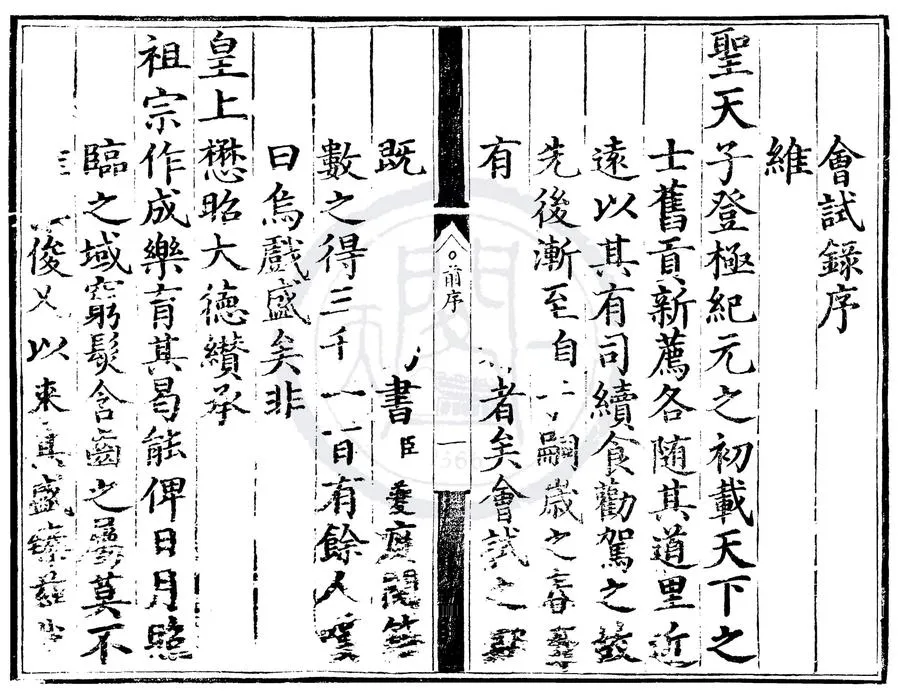 會試錄序
維
聖天子登極紀元之初載天下之
士舊貢新薦各隨其道里近
遠以其有司續食勸駕之
先後漸至自嗣歲之春
有者矣會試之
前序
一
既書臣夔度閱
數之得三千一百有餘人嘆
曰烏戲盛矣非
皇上懋昭大德纘承
祖宗作成樂育其曷能俾日月照
臨之域窮髮含齒之莫不
俊乂以來其盛